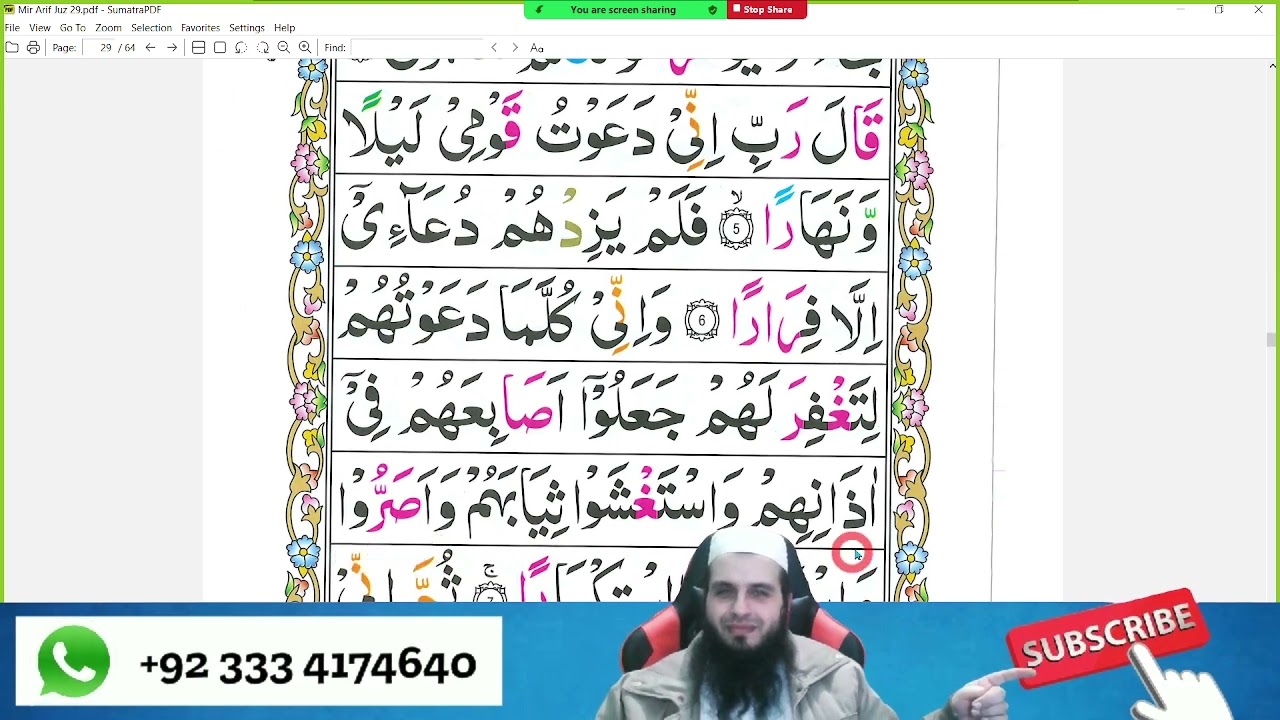 Mir Arif Juz 29.pdf - SumatraPDF
You are screen sharing
Stop Share
File View Go To Zoom Selection Favorites Settings Help
Page: 29 / 64 Find: Aa
قَالَ رَبِّ اِنِّیْ دَعَوْتُ قَوْمِیْ لَیْلًا
وَّنَهَارًا ۙ 5 فَلَمْ یَزِدْهُمْ دُعَآءِیْۤ
اِلَّا فِرَارًا 6 وَاِنِّیْ كُلَّمَا دَعَوْتُهُمْ
لِتَغْفِرَ لَهُمْ جَعَلُوْۤا اَصَابِعَهُمْ فِیْۤ
اٰذَانِهِمْ وَاسْتَغْشَوْا ثِیَابَهُمْ وَاَصَرُّوْا
+92 333 4174640
SUBSCRIBE